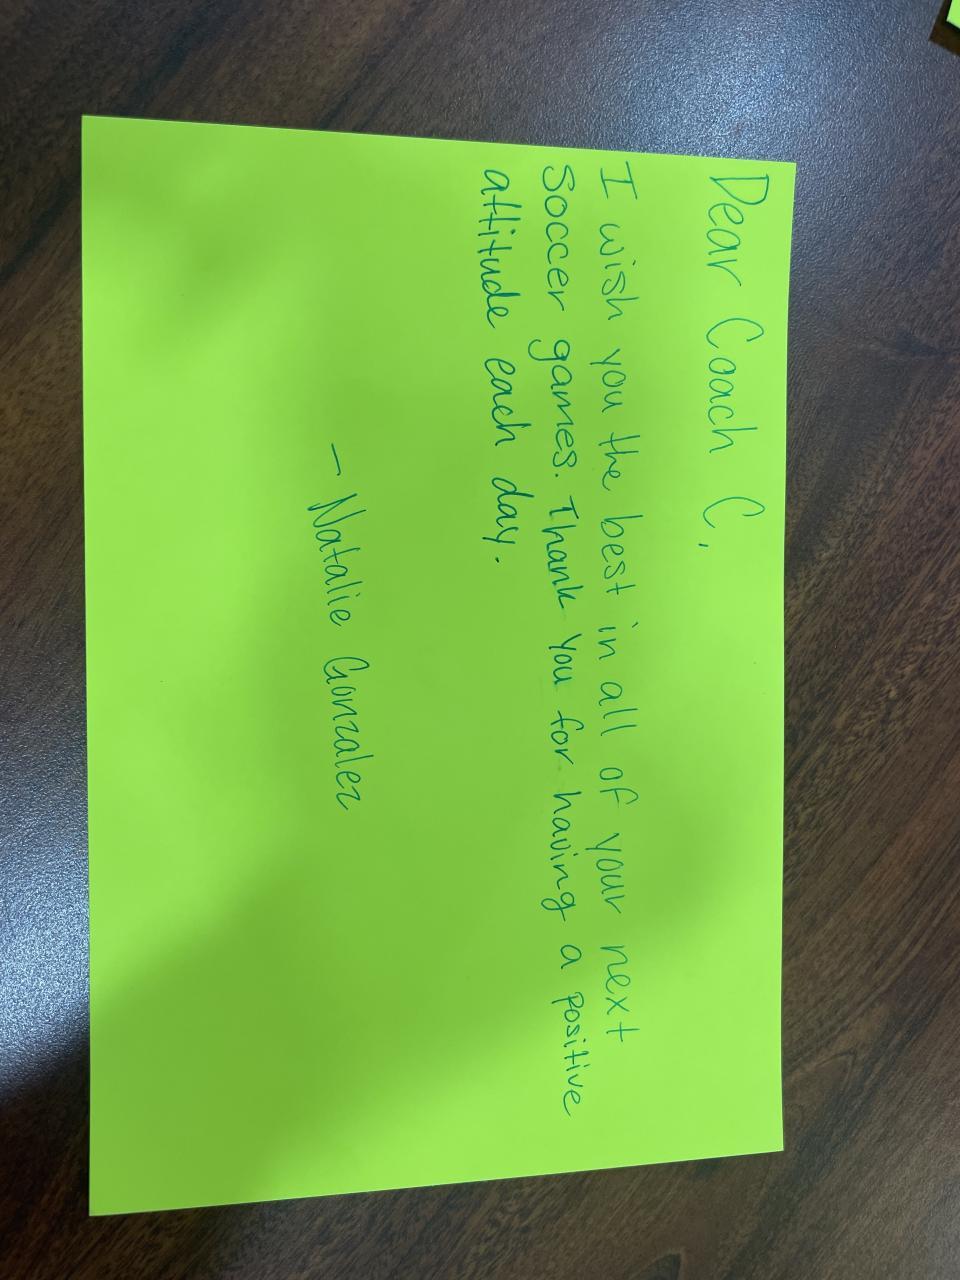 Dear Coach C,
I wish you the best in all of your next
Soccer games. Thank you for having a positive
attitude each day.
- Natalie Gonzalez